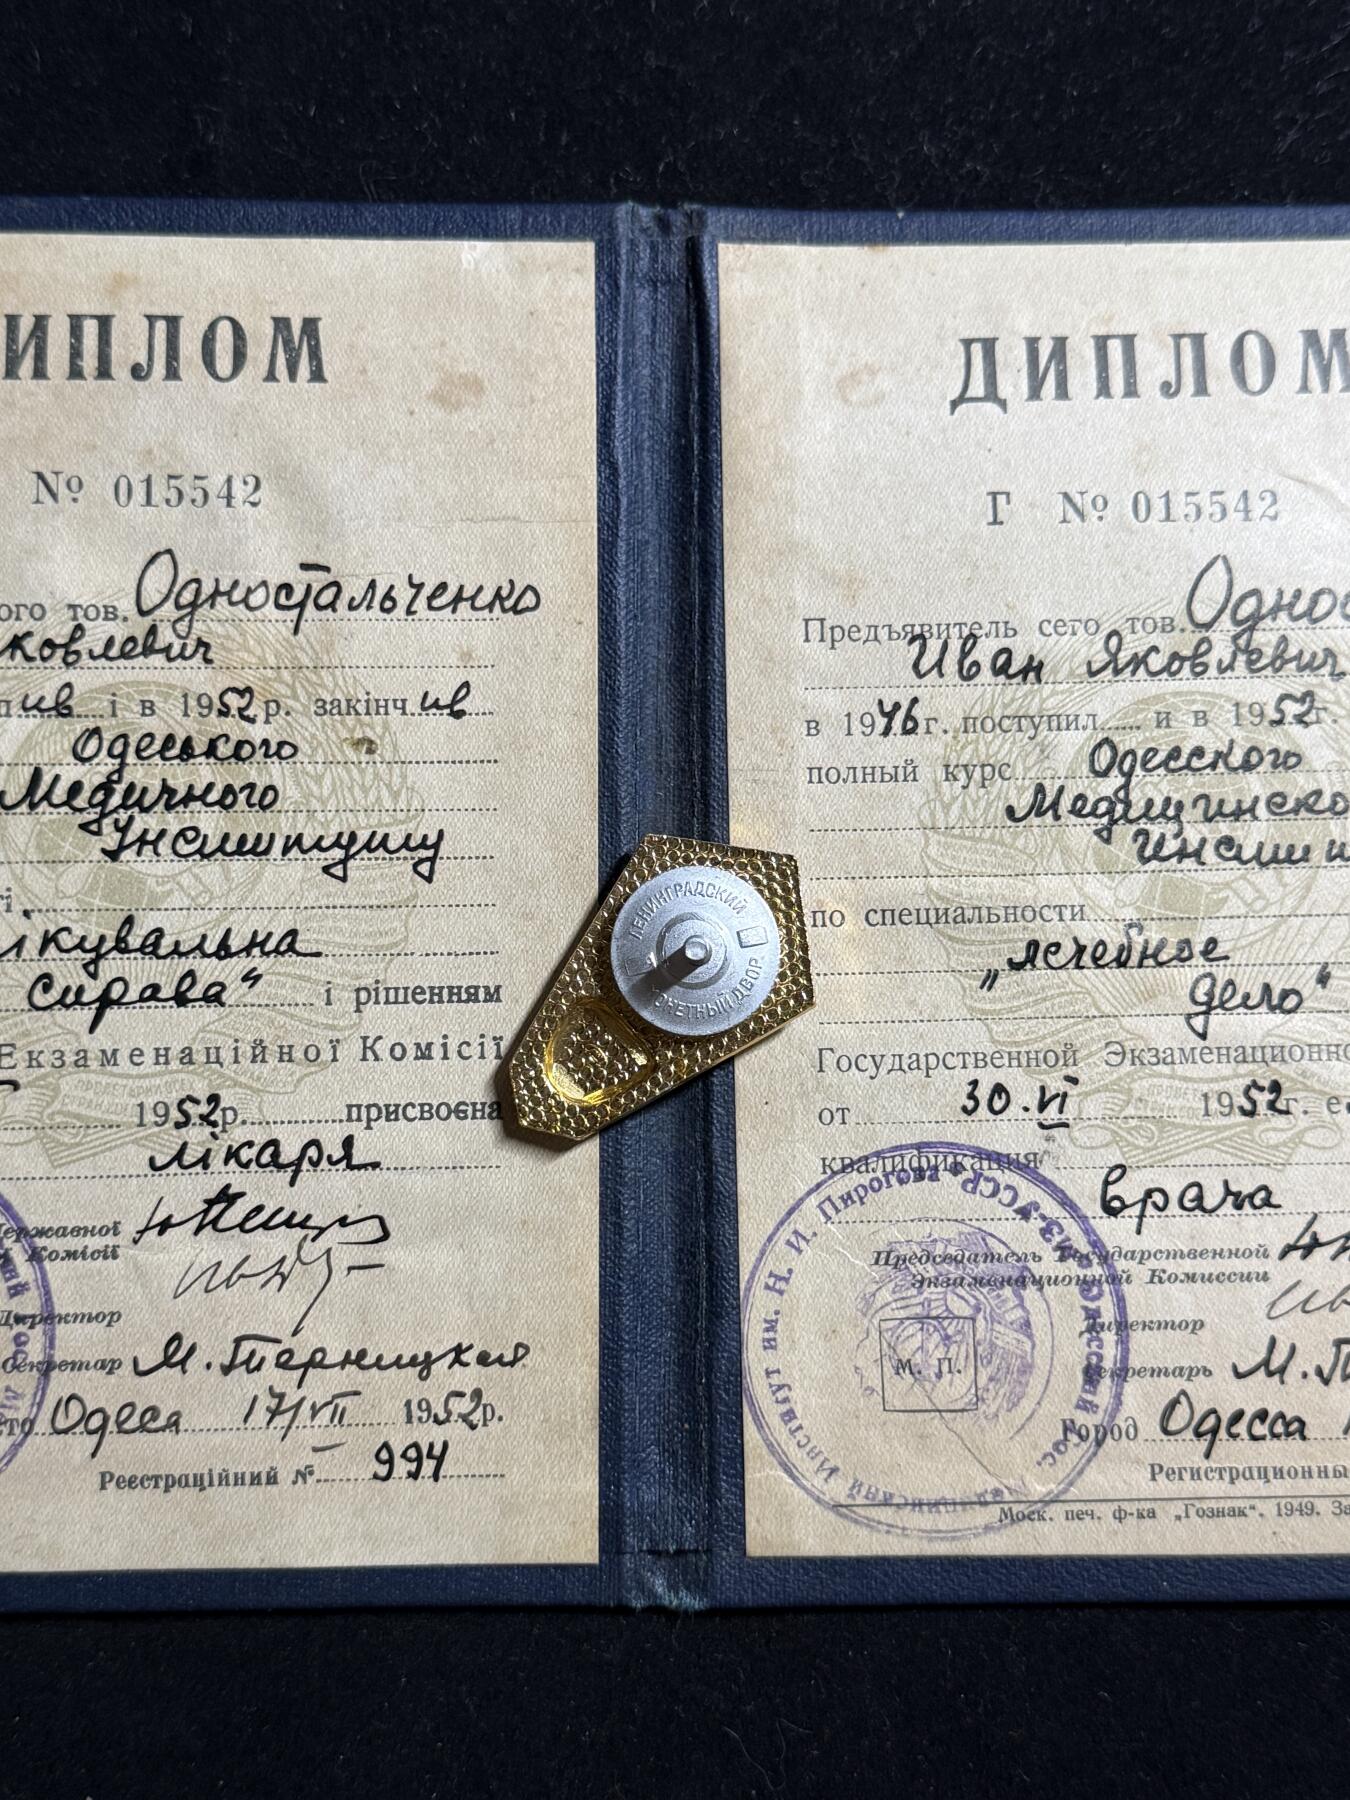 ИПЛОМ
№ 015542
ого тов. Одностальченко
ковлевич
ив і в 1952 р. закінч ив
Одеського
Медичного
Інституту
ікувальна
справа" і рішенням
Екзаменаційної Комісії
1952 р. присвоєна
лікаря
Державної
Комісії
Директор
Секретар М. Терницкая
Одеса 17/VII 1952 р.
Реєстраційний № 994
ЛЕНИНГРАДСКИЙ
МОНЕТНЫЙ ДВОР
ДИПЛОМ
Г № 015542
Предъявитель сего тов. Однос
Иван Яковлевич
в 1946 г. поступил и в 1952 г.
полный курс Одесского
Медицинско
Инсти
по специальности
„лечебное
дело"
Государственной Экзаменационно
от 30.VI 1952 г. е
квалификация
врача
Председатель Государственной
Экзаменационной Комиссии
Директор
Секретарь М. Т
Город Одесса
Регистрационны
Моск. печ. ф-ка „Гознак". 1949. За
М. П.
Одесский Гос. Медицинский Институт им. Н. И. Пирогова
УССР